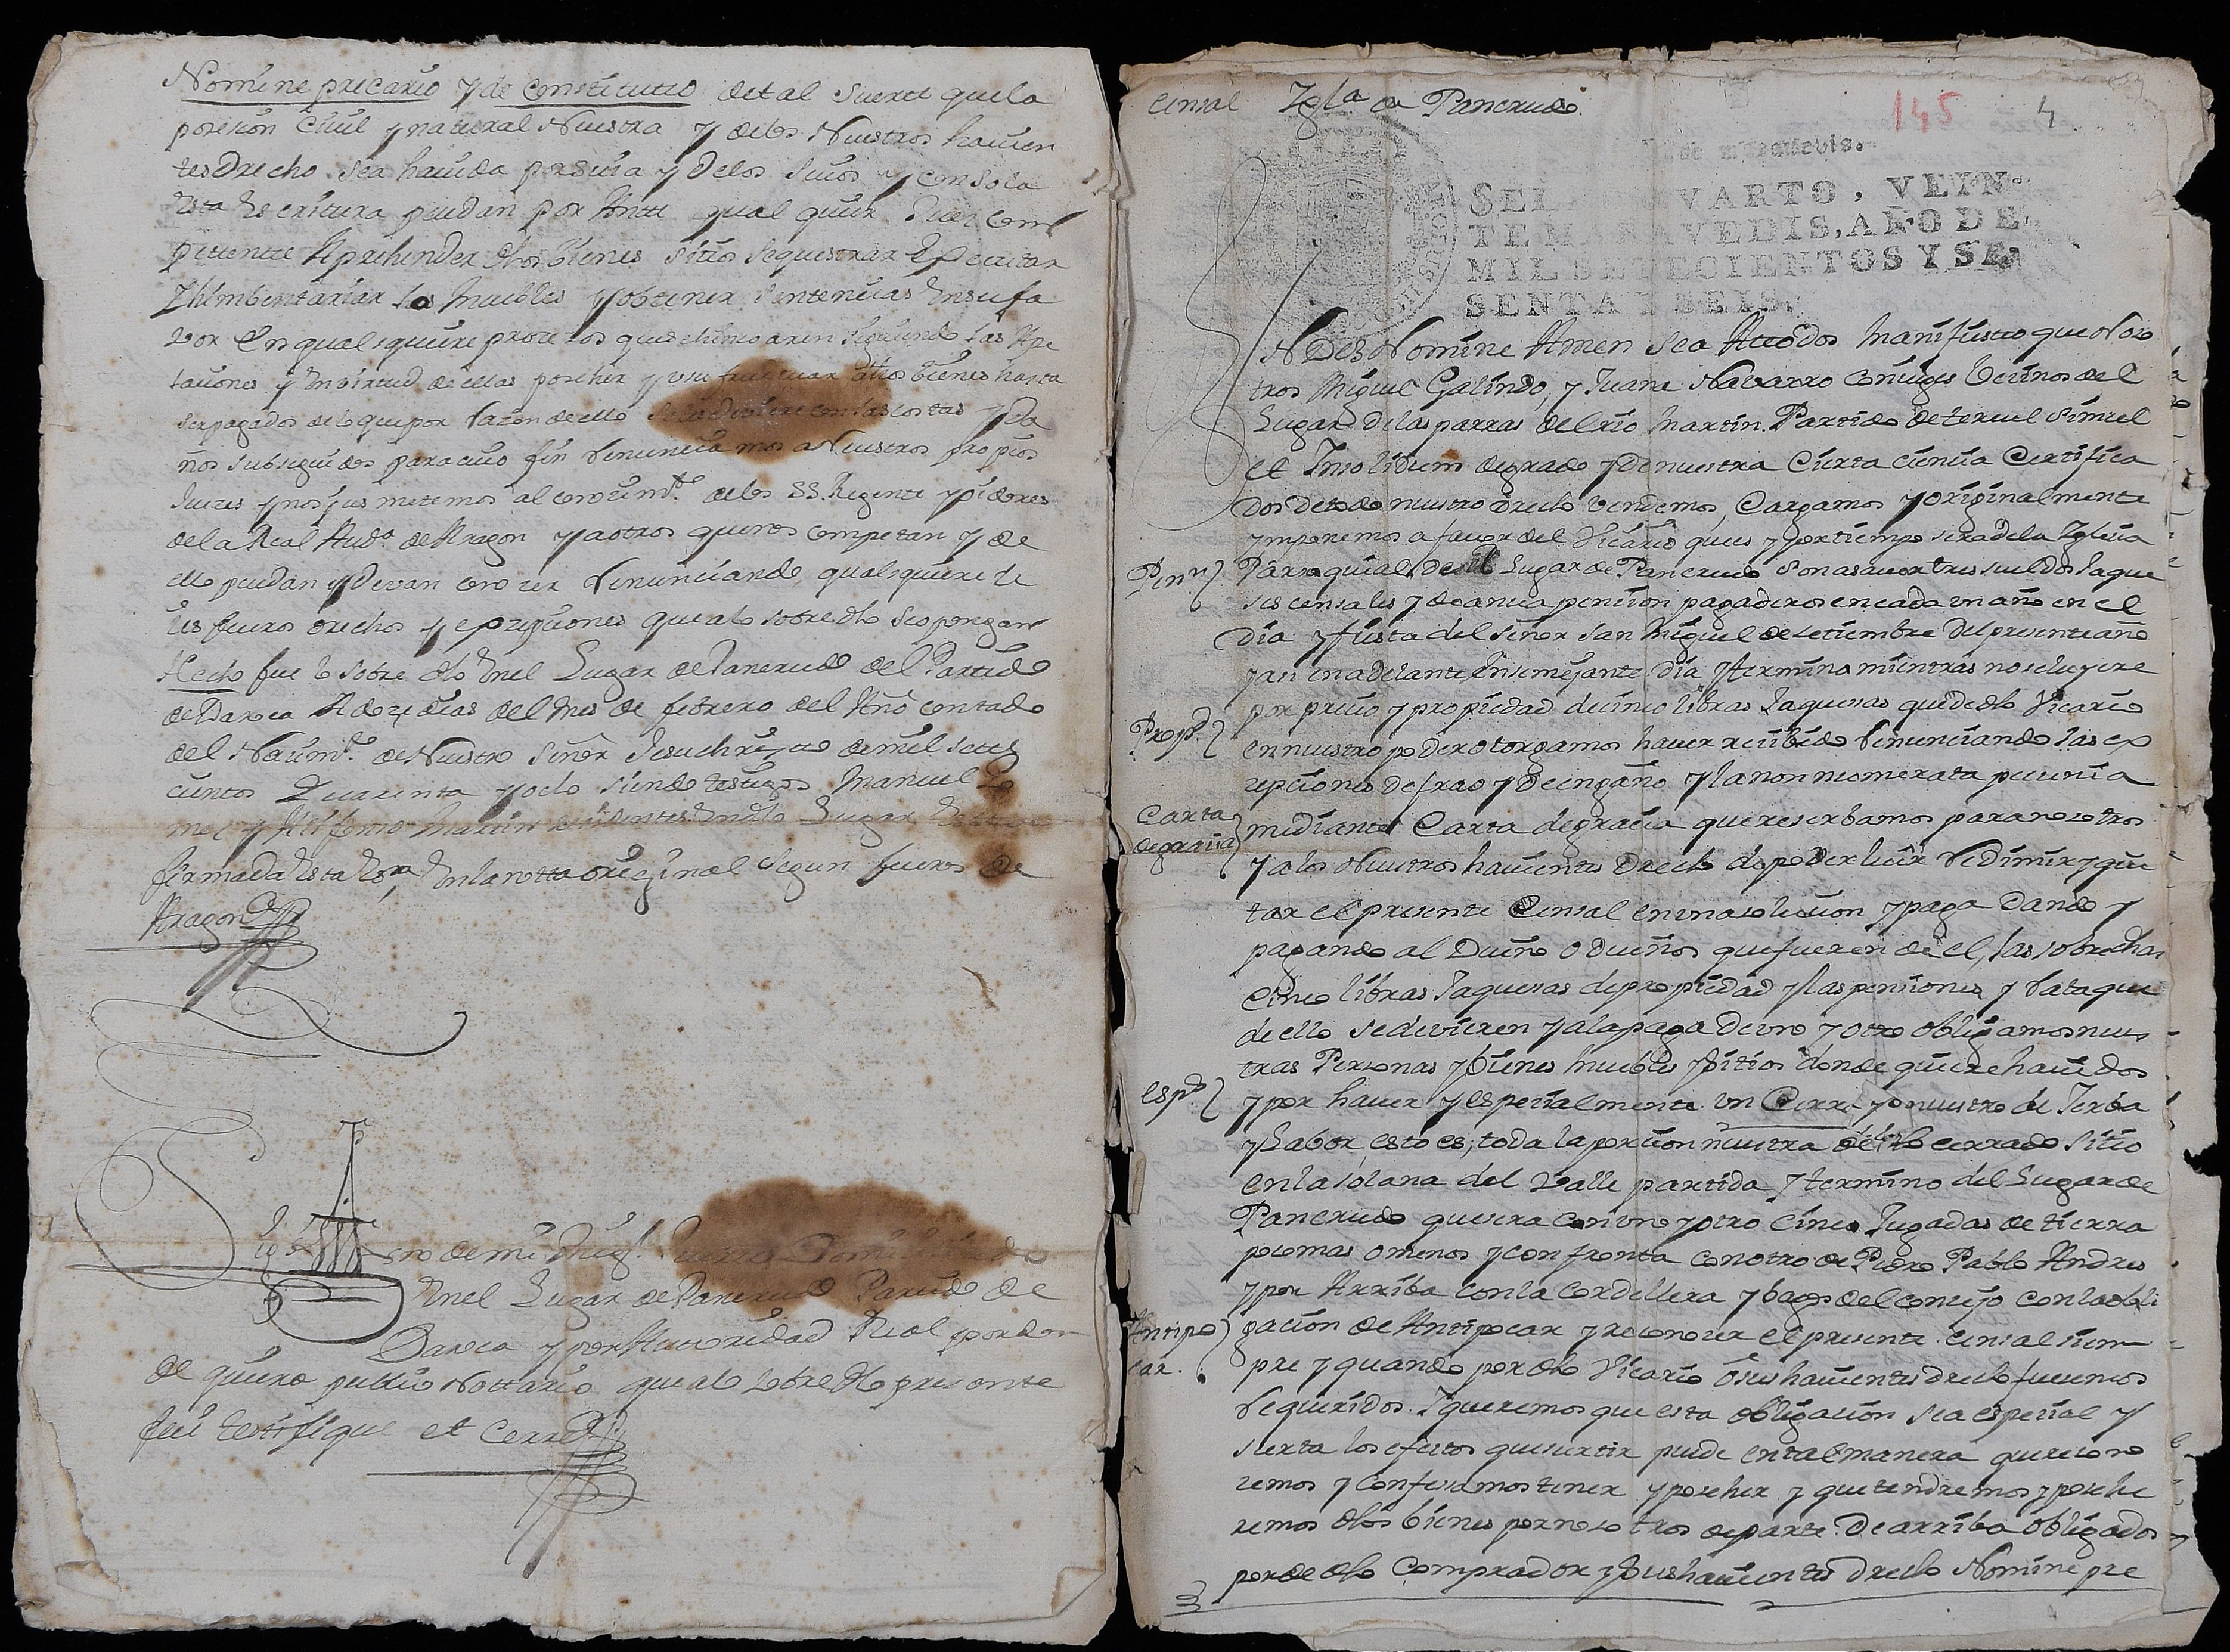 Nomine precario y de constitutio de tal suerte que la
posesion Civil y natural Nuestra y de los Nuestros havien
tes drecho sea havida por suia y de los suios y con sola
esta Escritura puedan por Ante qual quiere Juez com
petente Aprehender dhos bienes sitios sequestrar Executar
Ymbentariar los Muebles y obtener Sentencias en su fa
vor en quales quiere procesos que
y en virtud de ellas posehir y usufructuar dhos bienes hasta
ser pagados de lo que por razon de ello se les deviere con las costas y da
ños subseguidos para cuio fin renunciamos a Nuestros propios
Juezes y nos jusmetemos al conocimto. de los SS. Regente y oidores
de la Real Auda. de Aragon y a otros que nos competan y de
ello puedan y devan conozer renunciando quales quiere le
ies fueros drechos y excepziones que a lo sobre dho se opongan
Hecho fue lo sobre dho en el Lugar de Pancrudo del Partido
de Daroca A doze dias del mes de febrero del Año contado
del Nacimto. de Nuestro Señor Jesuchristo de mil Sete
cientos Quarenta y ocho siendo testigos Manuel
mez y Martin residentes en dho Lugar
firmada esta Esra. en la notta original segun fueros de
Aragon
Sig no de mi Migl. Domiciliado
en el Lugar de Pancrudo Partido de
Daroca y por Autoridad Real por do
de quiere publico Nottario que a lo sobre dho presente
fui testifique et cerre
Censal Igla. de Pancrudo. 145 4
SEL VARTO, VEIN-
TE MARAVEDIS, AÑO DE
MIL SETECIENTOS Y SE-
SENTA Y SEIS.
N Dei Nomine Amen sea Attodos manifiesto que Noso
tros Miguel Galindo, y Juana Navarro coniuges Vecinos del
Lugar de las parras del rio martin Partido de teruel simul
et Insolidum de grado y de nuestra cierta ciencia Certifica
dos de todo nuestro drecho vendemos, Cargamos y originalmente
ymponemos a favor del Vicario que es y por tiempo sera de la Iglesia
Penn. Parroquial de el Lugar de Pancrudo son a saver tres sueldos Jaque
ses censales y de annua pension pagaderos en cada un año en el
dia y fiesta del Señor San Miguel de setiembre del presente año
y asi en adelante en semejante dia y termino mientras no se luyere
Propd. por precio y propiedad de cinco libras Jaquesas que de dho Vicario
en nuestro poder otorgamos haver recibido renunciando las ex
cepciones de frao y de engaño y la non numerata pecunia
Carta de gracia mediante Carta de gracia que reserbamos para nosotros
y a los Nuestros havientes drecho de poder luir redimir y qui
tar el presente Censal en una solucion y paga dando y
pagando al Dueño o Dueños que fueren de el, las sobredhas
cinco libras Jaquesas de propiedad y las pensiones y rata que
de ello se devieren y a la paga de uno y otro obligamos nues
tras Personas y bienes muebles y sitios donde quiere havidos
espd. y por haver y especialmente un Cerra yo nuestro de Yerba
y Labor, esto es, toda la porcion nuestra de dho cerrado sitio
en la solana del Valle partida y termino del Lugar de
Pancrudo que sera con uno y otro cinco Jugadas de tierra
poco mas o menos y confronta con otro de Pedro Pablo Andres
y por Arriba con la cordillera y bago del conzejo con la obli
Antipo car. gacion de Antipocar y reconozer el presente censal siem
pre y quando por dho Vicario o sus havientes drecho fueremos
requeridos. Y queremos que esta obligacion sea espezial y
surta los efectos que surtir puede en tal manera que recono
zemos y confesamos tener y posehir y que tendremos y posehi
remos dhos bienes por nosotros de parte de arriba obligados
por de dho Comprador y sus havientes drecho Nomine pre